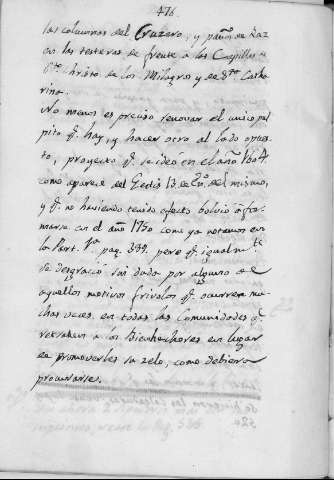 476.
las columnas del Cruzero, y paños de Raz
en los testeros de frente a los Capillas
Sto. Christo de los Milagros y de Sta. Catha
rina.
No menos es preciso renovar el unico pul
pito q. hay, y hacer otro al lado opues
to, proyecto q. se ideo en el año 1604
como aparece del Gestis 13 de En.o del mismo,
y q. no haviendo tenido efecto bolvió a for
marse en el año 1750 como ya notamos en
la Part. 1a. pag. 389. pero q. igualm.te
se desgració sin duda por alguno de
aquellos motivos frivolos q. ocurren mu
chas veces en todas las Comunidades q.
retrahen a los Bienhechores en lugar
de promoverles su zelo, como debiera
procurarse.